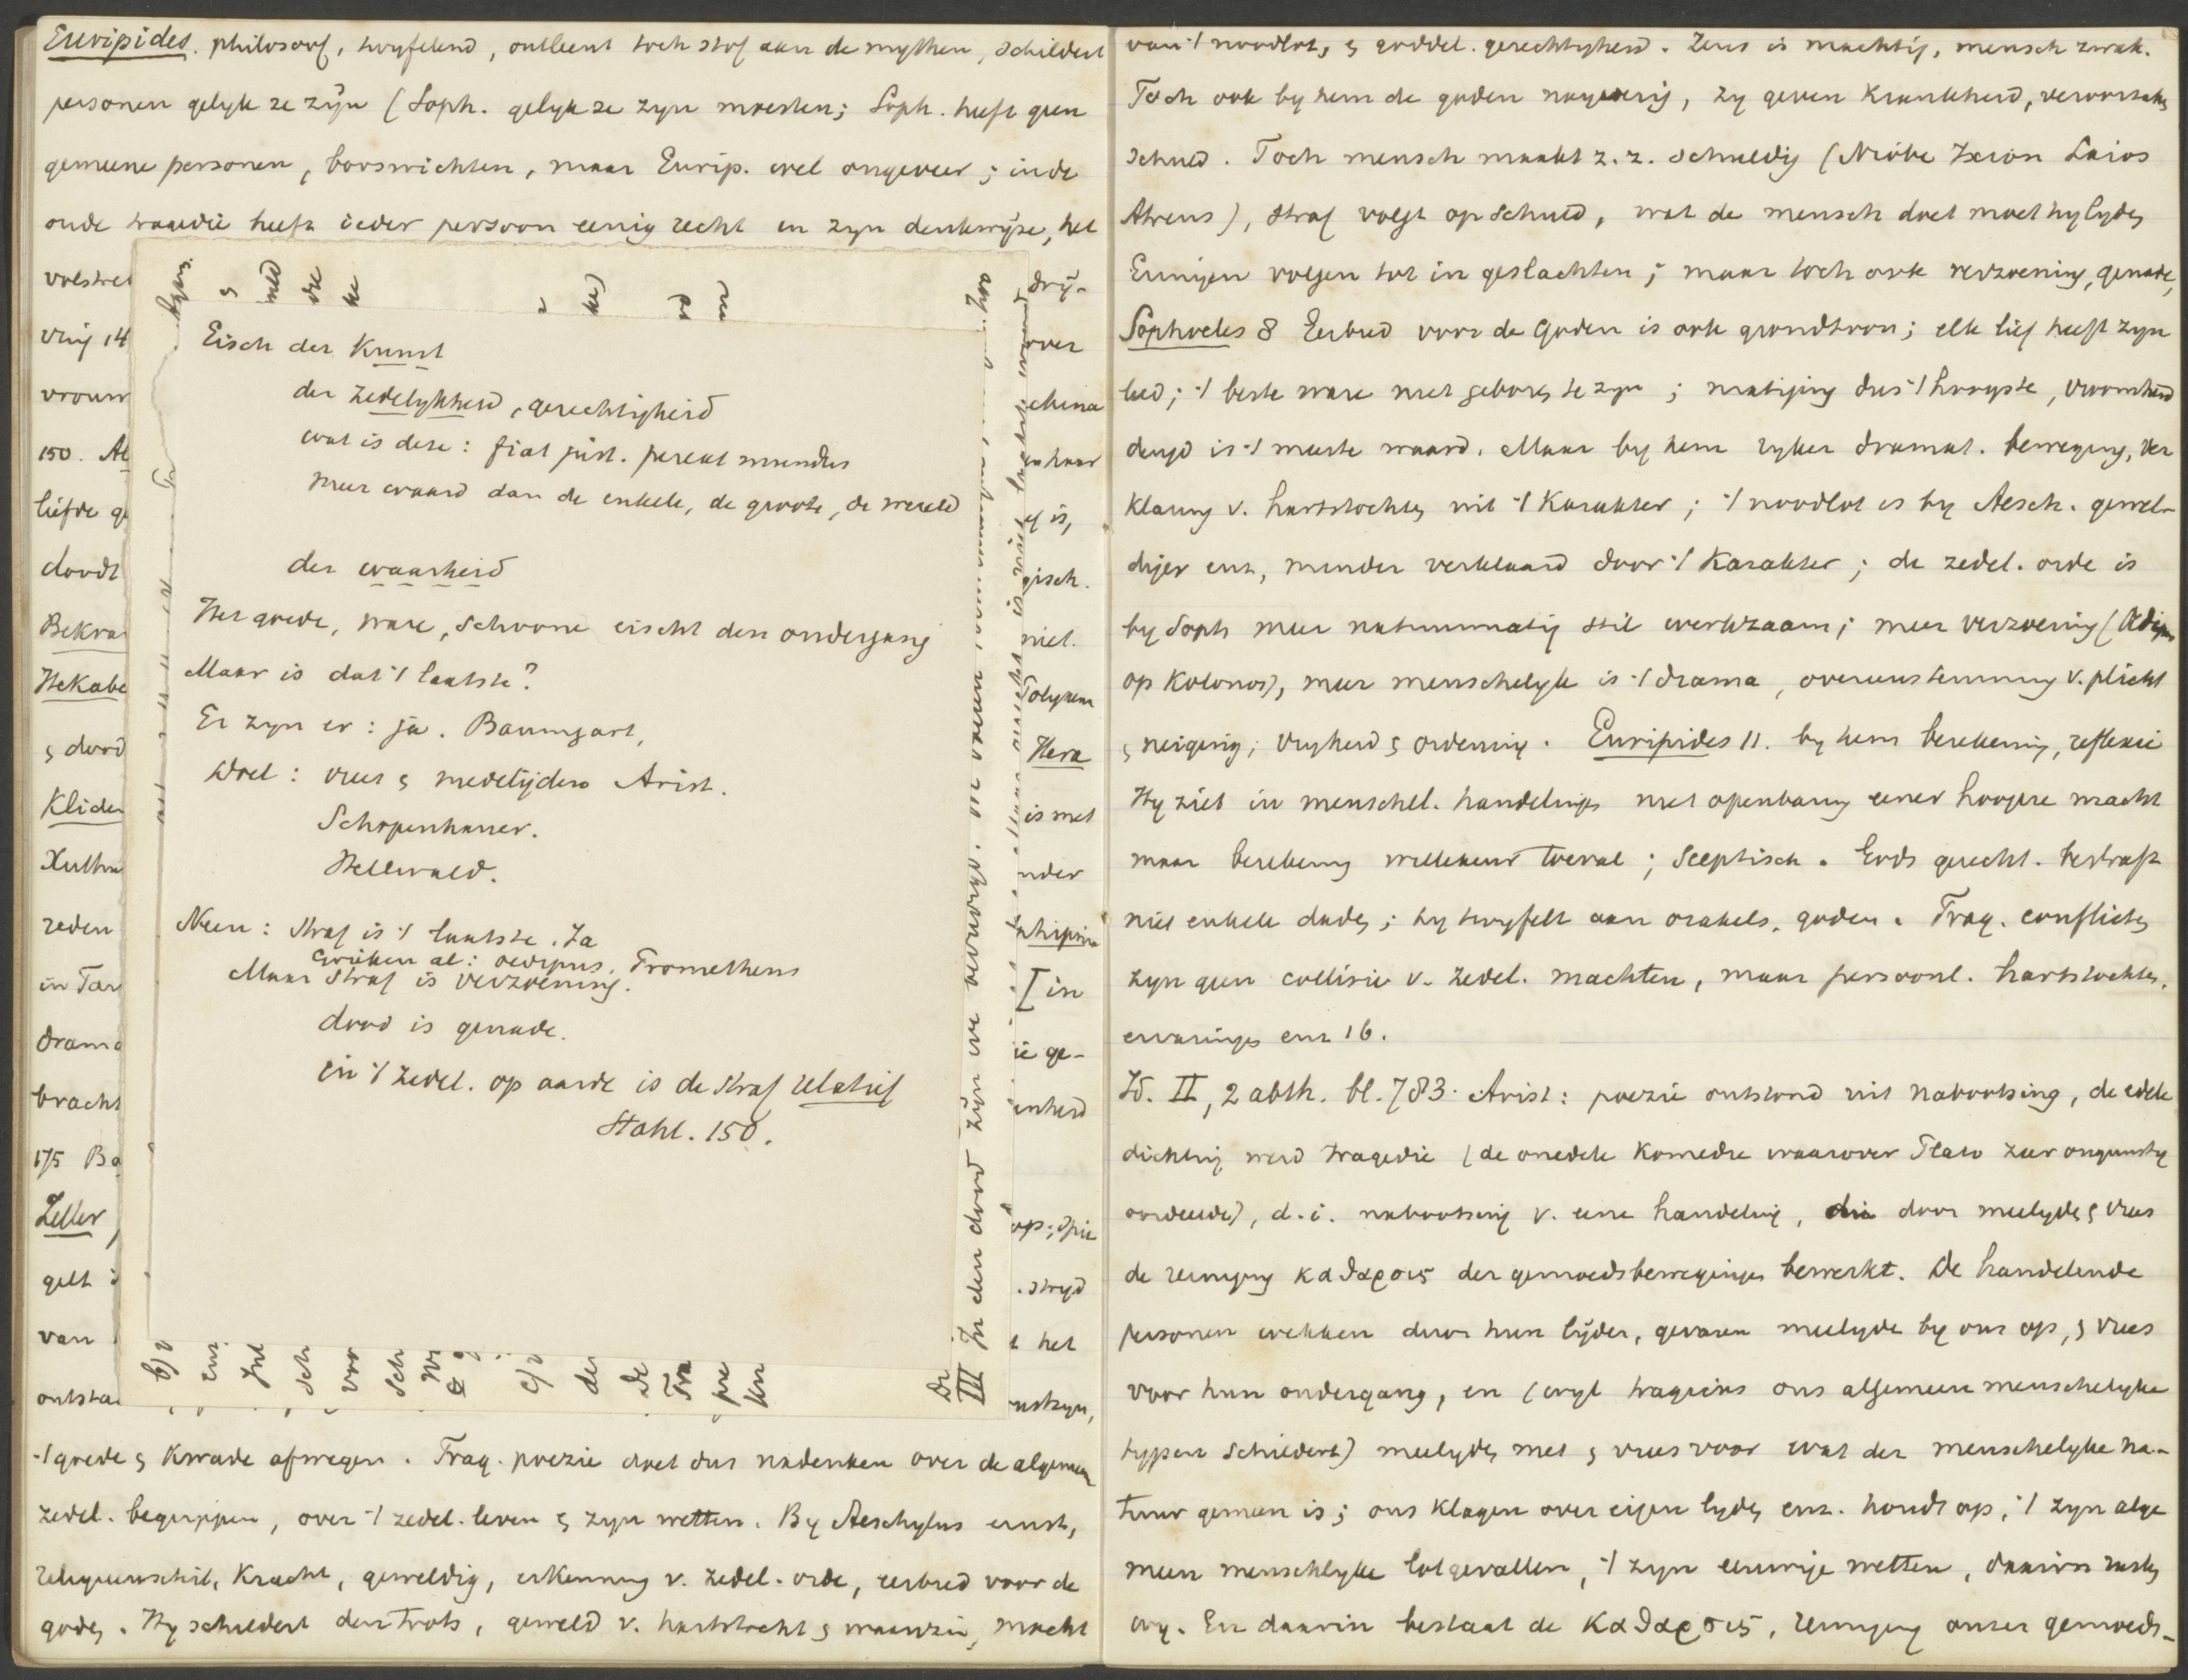 Euripides. philosoof, twyfelend, ontleent toch stof aan de mythen, schildert
personen gelyk ze zyn (Soph. gelyk ze zyn moesten; Soph. heeft geen
gemeene personen, booswichten, maar Eurip. wel ongeveer; in de
oude tragedie heeft ieder persoon eenig recht in zyn denkwyze, het
vrouw
150.
liefde
doodt
Hekabe
ς dood
reden
drama
bracht
175
Zeller
van
Eisch der Kunst
der Zedelykheid, gerechtigheid
wat is deze: fiat just. pereat mundus
meer waard dan de enkele, de groote, de wereld
der waarheid
Het goede, ware, schoone eischt den ondergang
Maar is dat 't laatste?
Er zyn er: ja. Baumgart,
Doel: vrees ς medelijden Arist.
Schopenhauer.
Hellwald.
Neen: Straf is 't laatste. Ja
Grieken al: Oedipus, Prometheus
Maar straf is verzoening.
dood is genade.
in 't zedel. op aarde is de straf relatief
Stahl. 150.
III In den dood zijn we
dry-
over
gisch.
niet.
Hera
is met
[in
ie ge-
stryd
het
't goede ς kwade afwegen. Trag. poezie doet dus nadenken over de algemeen
zedel. begrippen, over 't zedel. leven ς zyn wetten. By Aeschylus ernst,
kracht, geweldig, erkenning v. zedel. orde, eerbied voor de
godς. Hy schildert den trots, geweld v. hartstocht ς waanzin, macht
van 't noodlot, ς goddel. gerechtigheid. Zeus is machtig, mensch zwak.
Toch ook by hem de goden naijverig, zy geven krankheid, veroorzakς
schuld. Toch mensch maakt z. z. schuldig (Niobe Ixion Laios
Atreus), straf volgt op schuld, wat de mensch doet moet hy lydς
Erinyen volgen tot in geslachten; maar toch ook verzoening, genade,
Sophocles 8 Eerbied voor de Goden is ook grondtoon; elk lief heeft zyn
leed; 't beste ware niet geborς te zyn; matiging dus 't hoogste, vroomheid
deugd is 't meeste waard. Maar by hem ryker dramat. beweging, ver
klaring v. hartstochtς uit 't karakter; 't noodlot is by Aesch. gewel-
diger enz, minder verklaard door 't karakter; de zedel. orde is
by Soph meer natuurmatig stil werkzaam; meer verzoening (Oedipus
op Kolonos), meer menschelyk is 't drama, overeenstemming v. plicht
ς neiging; vryheid ς ordening. Euripides 11. by hem berekening, reflexie
Hy ziet in menschel. handelingς niet openbaring eener hoogere macht
maar berekening willekeur toeval; sceptisch. Gods gerecht. bestraft
niet enkele dadς; hy twyfelt aan orakels, goden. Trag. conflictς
zyn geen collisie v. zedel. machten, maar persoonl. hartstochtς,
ervaringς enz 16.
Id. II, 2 abth. bl. 783. Arist: poezie ontstond uit nabootsing, de edele
dichting werd tragedie (de onedele komedie waarover Plato zeer ongunstig
oordeelde), d.i. nabootsing v. eene handeling, die door meelydς ς vrees
de reiniging καθαρσις der gemoedsbewegingς bewerkt. De handelende
personen wekken door hun lijden, gevaren meelyde by ons op, ς vrees
voor hun ondergang, en (wyl tragicus ons algemeen menschelyke
typen schildert) meelydς met ς vrees voor wat der menschelyke na-
tuur gemeen is; ons klagen over eigen lydς enz. houdt op; 't zyn alge
meen menschlyke lotgevallen, 't zyn eeuwige wetten, daarin rustς
wy. En daarin bestaat de καθαρσις, reiniging onzer gemoeds-